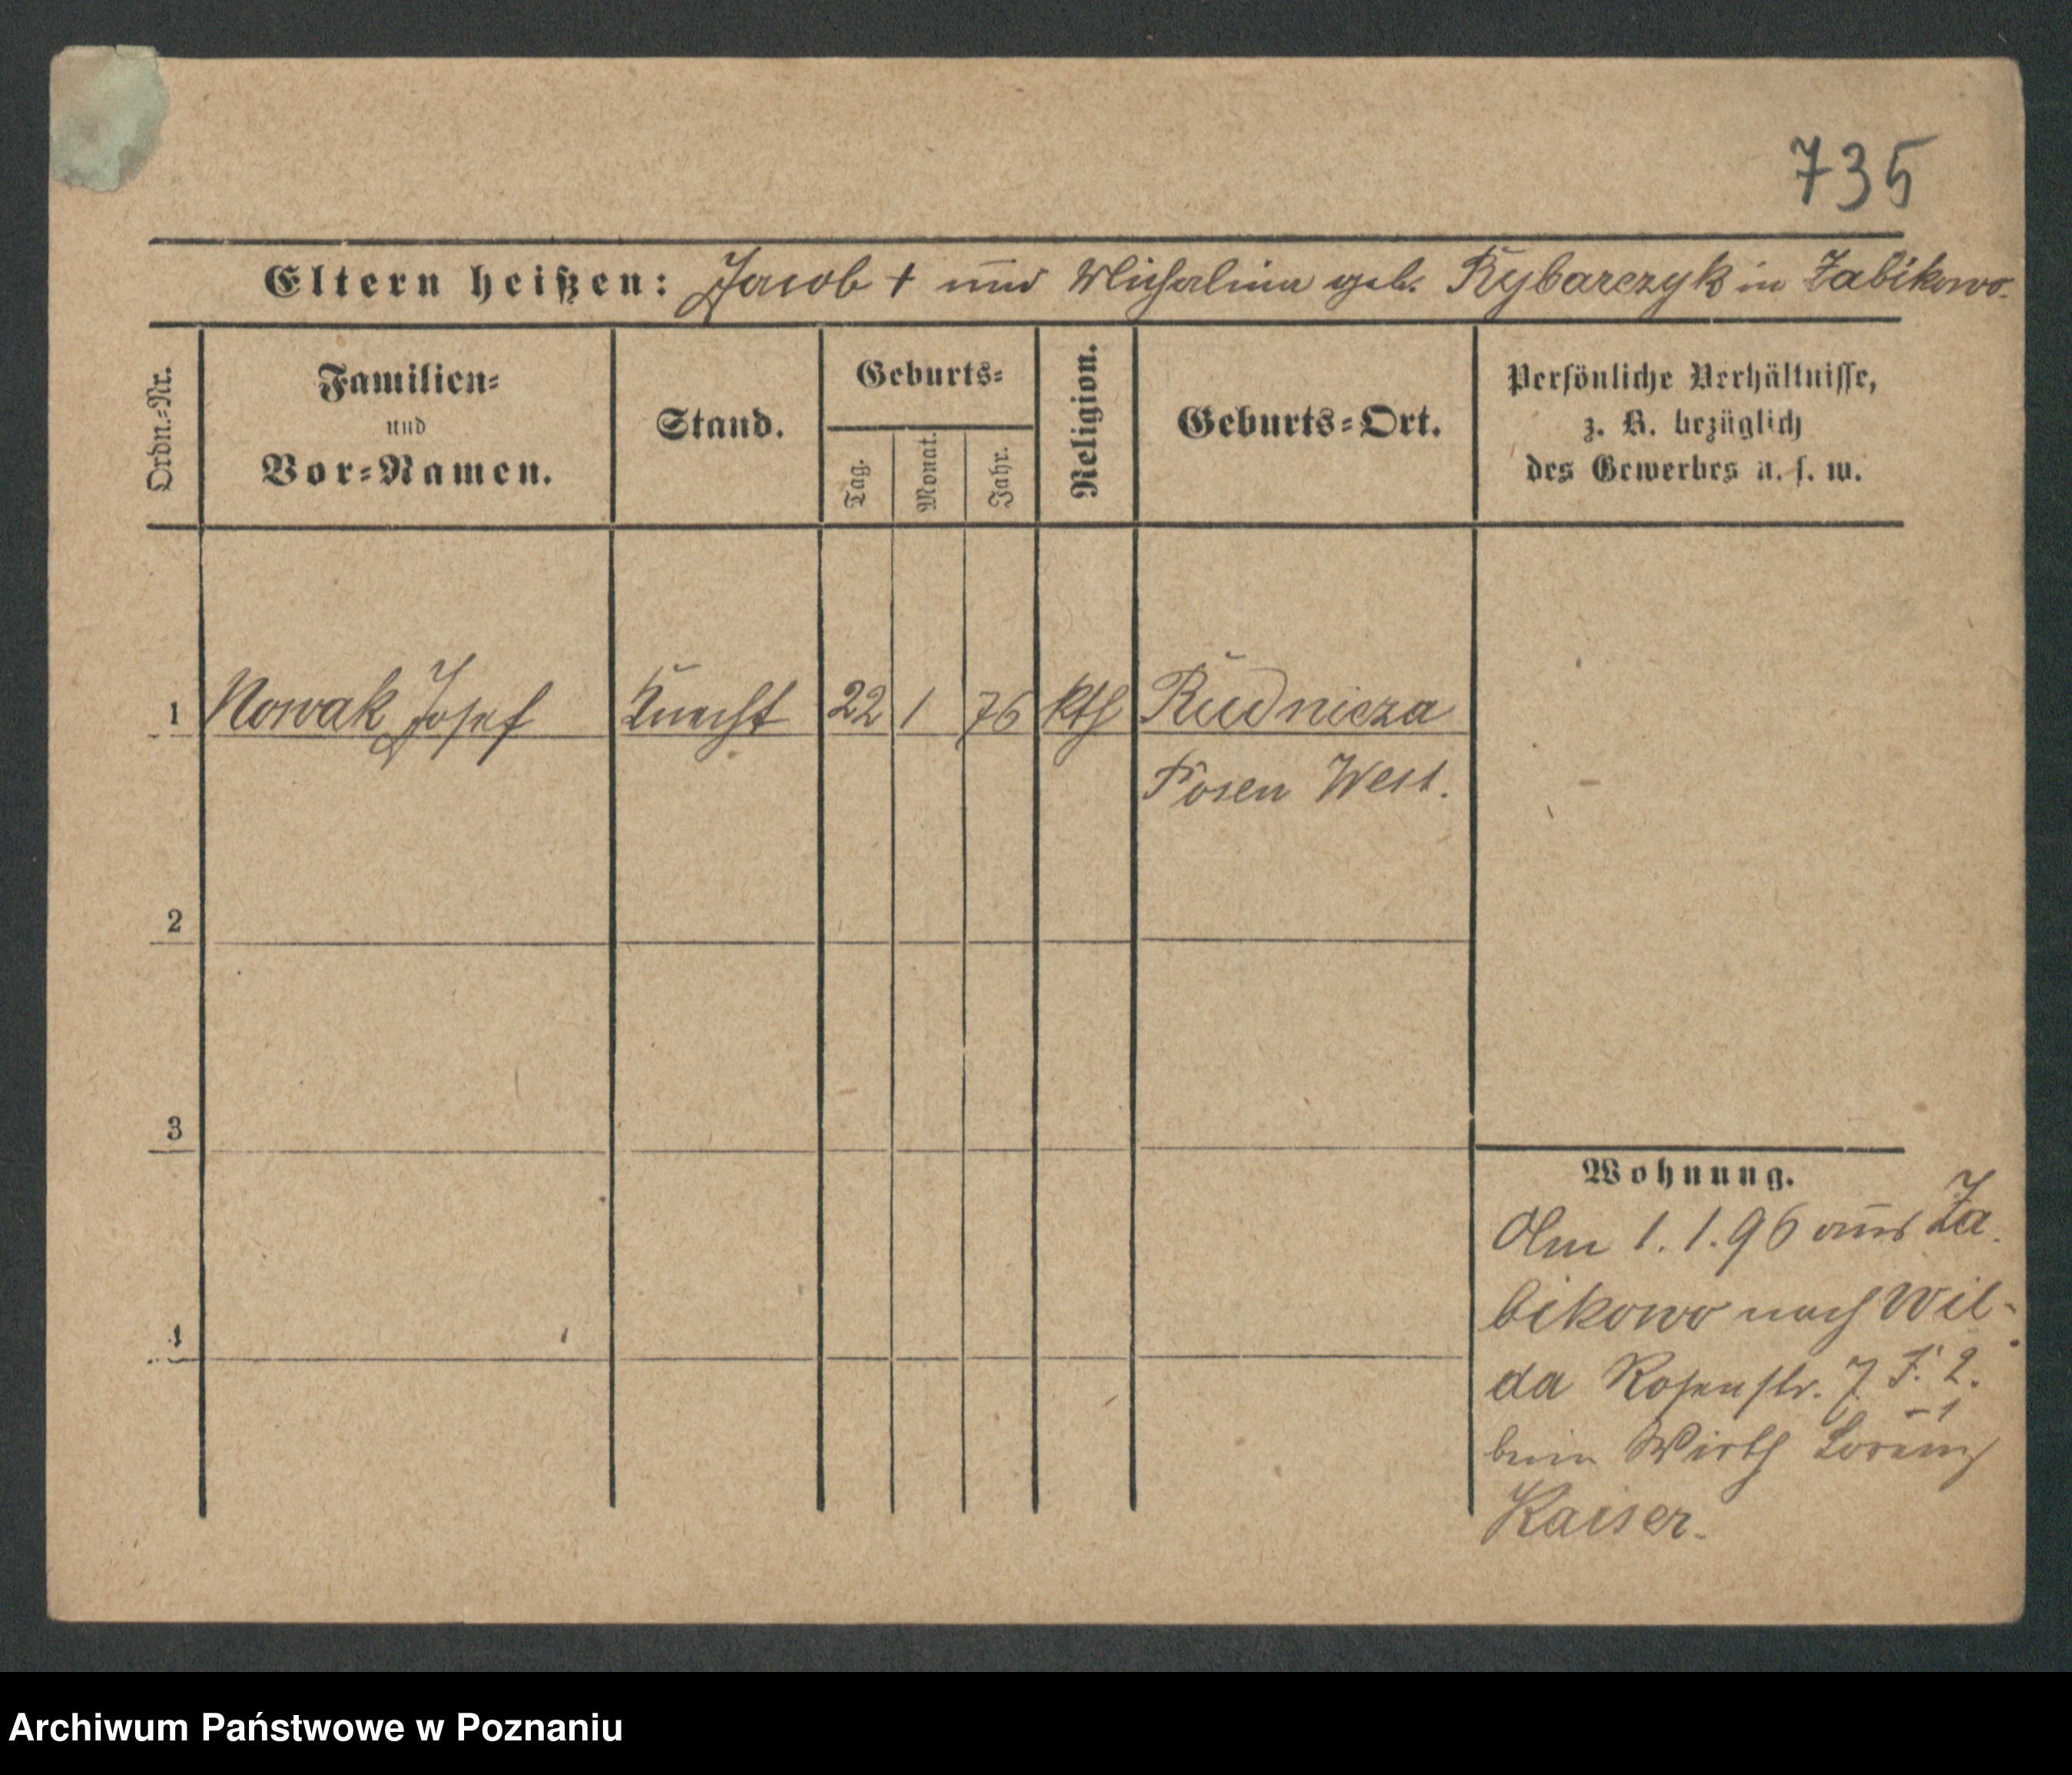 735
Eltern heißen: Jacob + und Michalina geb. Rybarczyk in Zabikowo.
Ordn.=Nr.
Familien=
und
Vor=Namen.
Stand.
Geburts=
Tag.
Monat.
Jahr.
Religion.
Geburts=Ort.
Persönliche Verhältnisse,
z. B. bezüglich
des Gewerbes u. s. w.
1 Nowak Josef Knecht 22 1 76 kth Rudnicza
Posen West.
2
3
4
Wohnung.
Am 1. 1. 96 aus Za
bikowo nach Wil-
da Rosenstr. 7 2.
beim Wirth Lorenz
Kaiser.
Archiwum Państwowe w Poznaniu